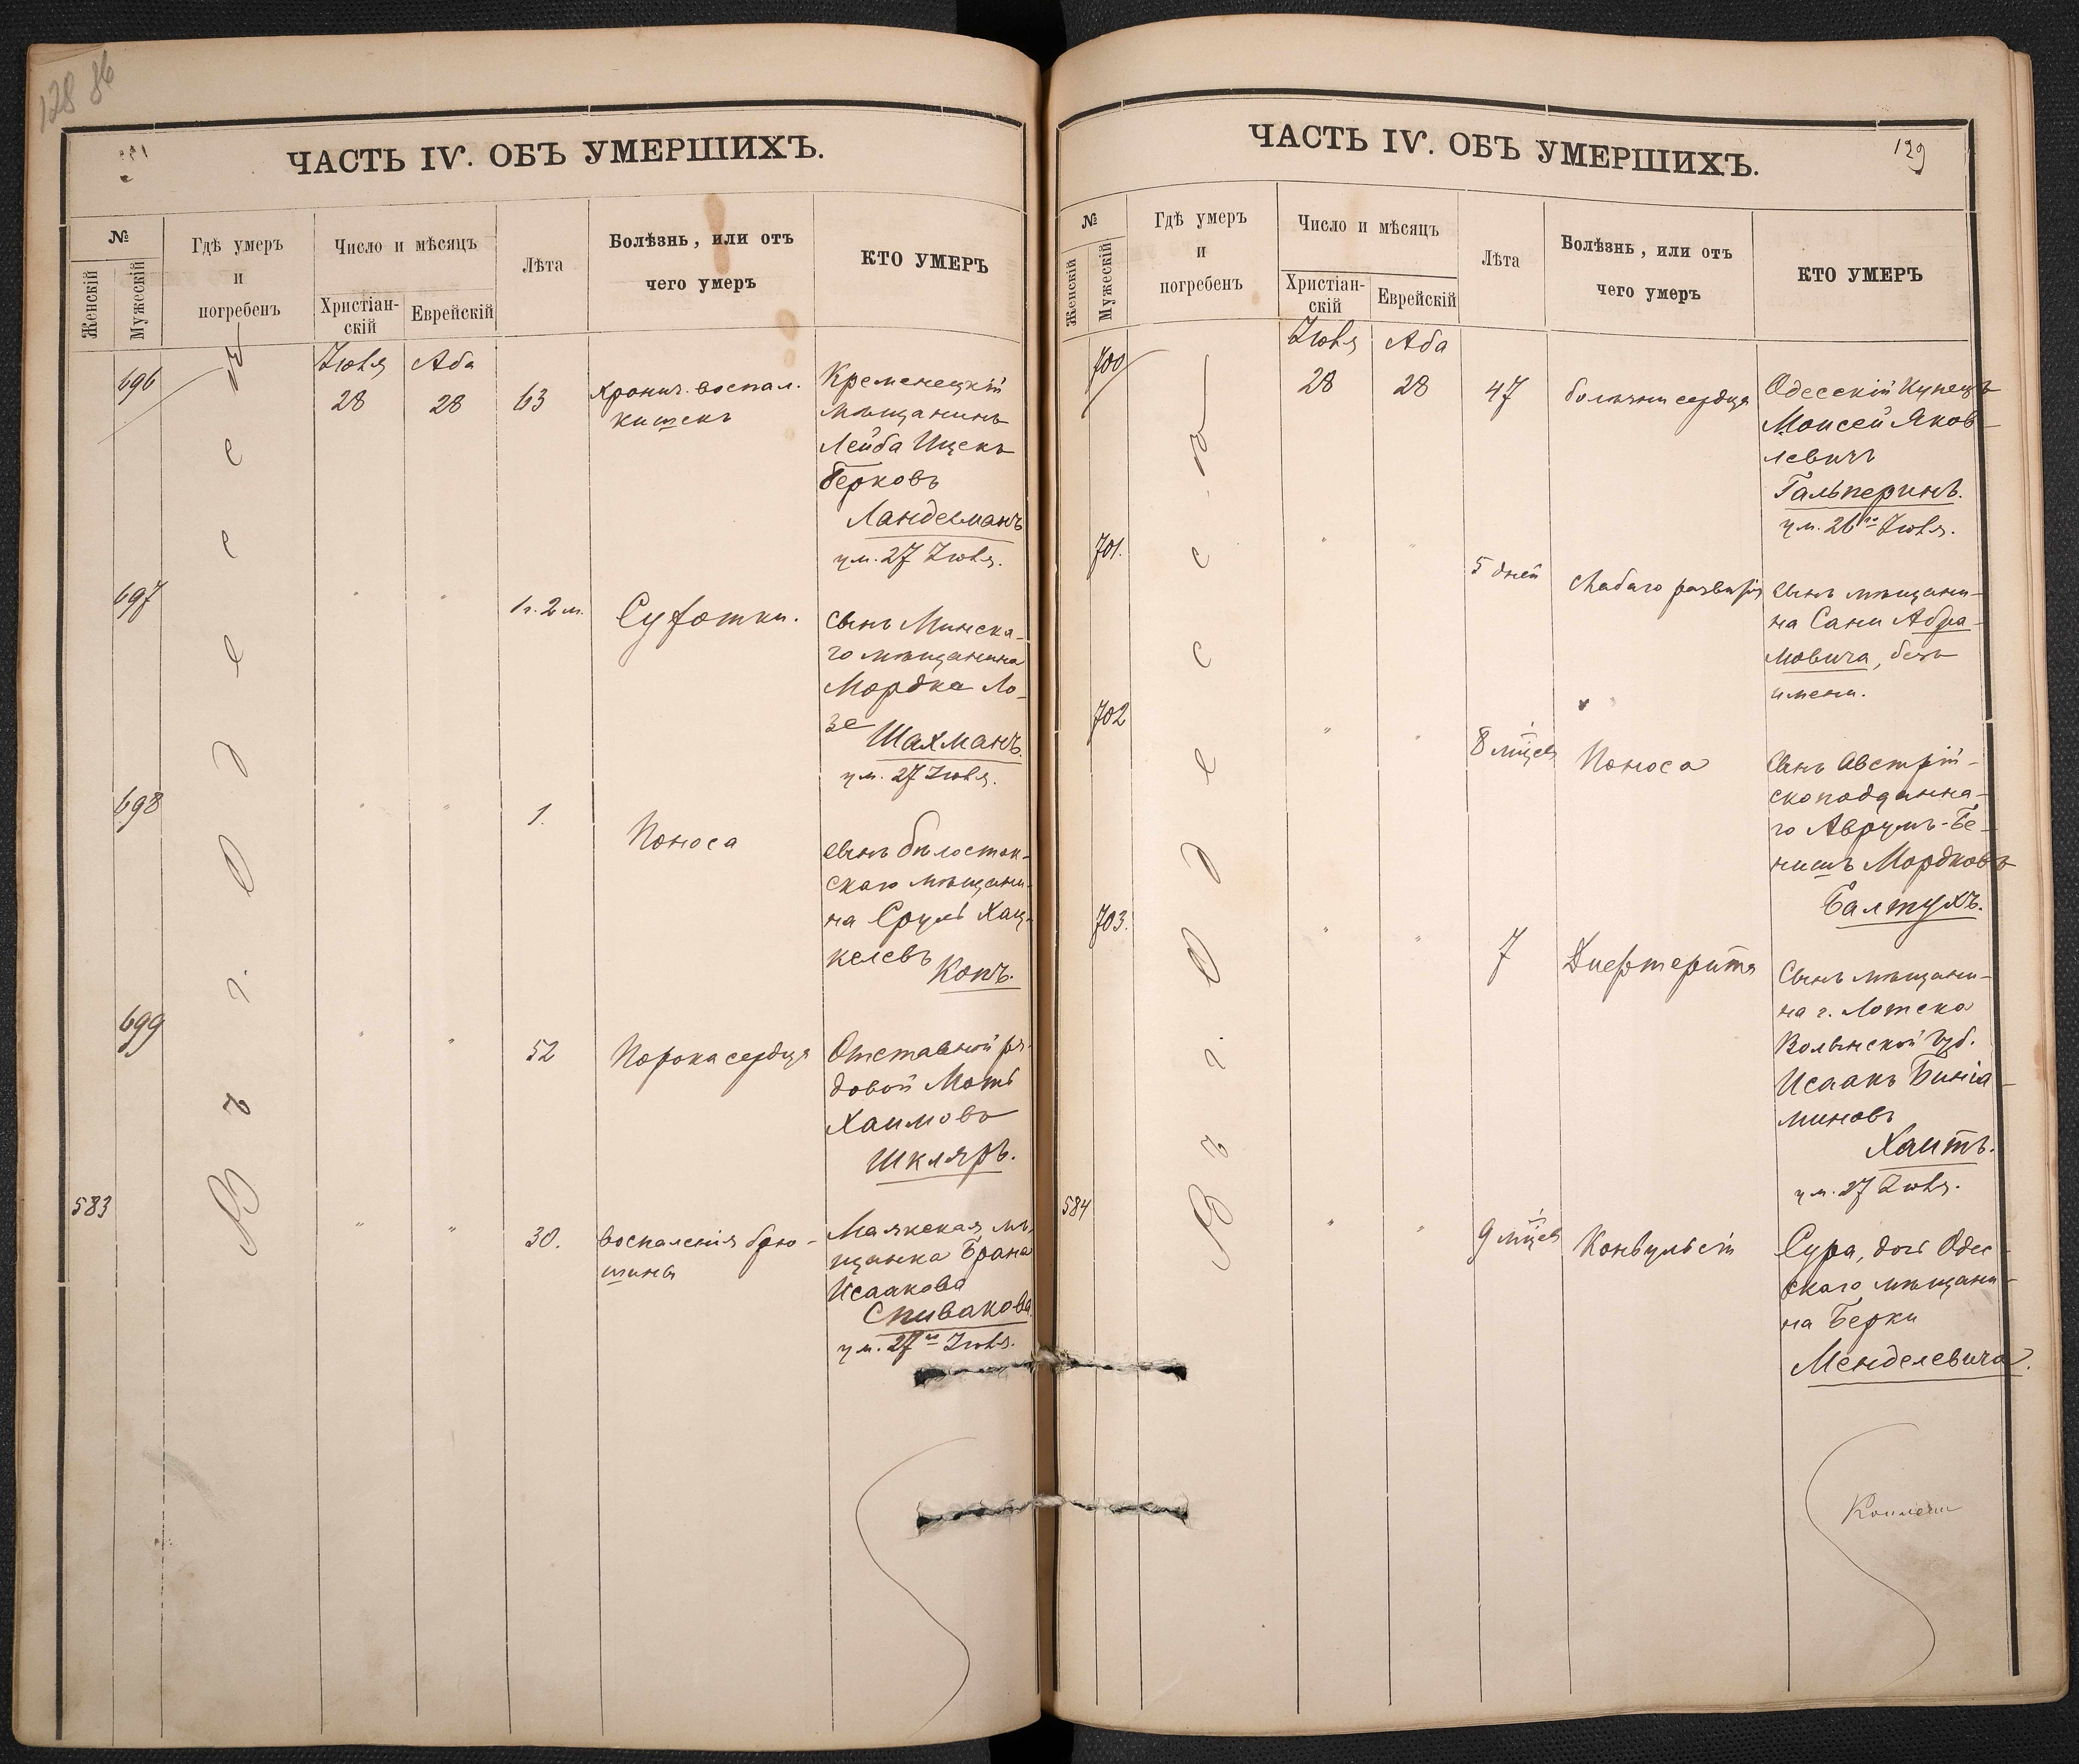 128 86
ЧАСТЬ IV. ОБЪ УМЕРШИХЪ.
№
Женскій
Мужескій
Гдѣ умеръ
и
погребенъ
Число и мѣсяцъ
Христіан-
скій
Еврейскій
Лѣта
Болѣзнь, или отъ
чего умеръ
КТО УМЕРЪ
Въ г. Одессѣ
696
Іюля
28
Аба
28
63
Хронич. воспал.
кишекъ
Кременецкій
мѣщанинъ
Лейба Ицекъ
Берковъ
Ландсманъ
ум. 27 Іюля.
697
"
"
1 г. 2 м.
Сухотки.
Сынъ Минска-
го мѣщанина
Мордка Ло-
зе
Шахманъ.
ум. 27 Іюля.
698
"
"
1.
Поноса
сынъ бѣлосток-
скаго мѣщани-
на Сруль Хац-
келевъ
Копъ.
699
"
"
52
Порока сердца
Отставной ря-
довой Моть
Хаимовъ
Шкляръ.
583
"
"
30.
Воспаленія брю-
шины
Маякская мѣ-
щанка Брана
Исаакова
Спивакова
ум. 27го Іюля.
ЧАСТЬ IV. ОБЪ УМЕРШИХЪ.
129
№
Женскій
Мужескій
Гдѣ умеръ
и
погребенъ
Число и мѣсяцъ
Христіан-
скій
Еврейскій
Лѣта
Болѣзнь, или отъ
чего умеръ
КТО УМЕРЪ
Въ г. Одессѣ
700
Іюля
28
Аба
28
47
болѣзни сердца
Одесскій купецъ
Моисей Яков-
левичъ
Гальперинъ.
ум. 26го Іюля.
701.
"
"
5 дней
слабаго развитія
Сынъ мѣщани-
на Сани Абра-
мовича, безъ
имени.
702
"
"
8 мцевъ
Поноса
Сынъ Австрій-
скоподданна-
го Аврумъ-Бе-
нишъ Мордковъ
Балтухъ.
703.
"
"
7
Дифтерита
Сынъ мѣщани-
на г. Лотска
Волынской губ.
Исаакъ Биніа-
миновъ
Хаитъ.
ум. 27 Іюля.
584
"
"
9 мцевъ
Конвульсіи
Сура, дочь Одес-
скаго мѣщани-
на Берки
Менделевича.